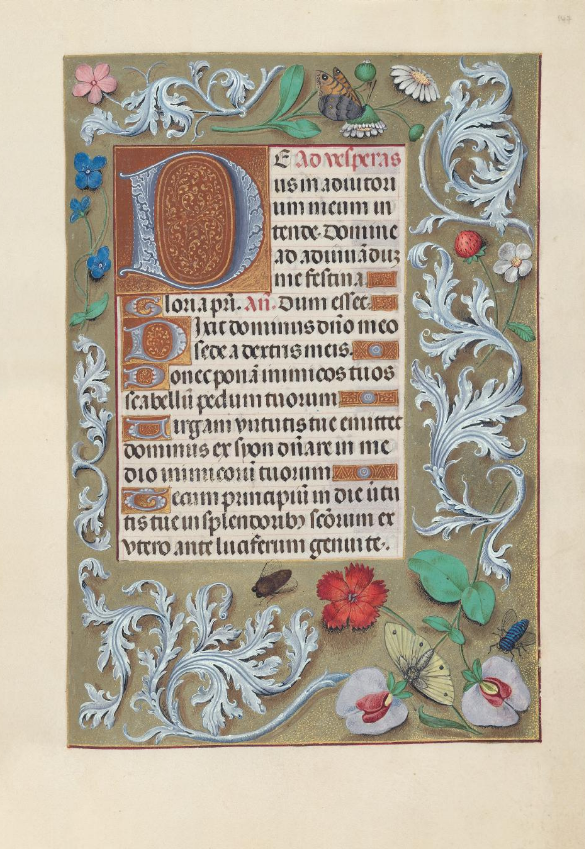 DE Ad vesperas
us in adiutori
um meum in
tende. Domine
ad adiuuādūz
me festina.
Gloria pri. An. Dum esset.
Dixit dominus dūo meo
sede a dextris meis.
Donec ponā inimicos tuos
scabellū pedum tuorum
Uirgam uirtutis tue emittet
dominus ex syon dūare in me
dio inimicorū tuorum
Tecum principiū in die uirtu
tis tue in splendoribꝫ sctōrum ex
vtero ante luciferum genui te.